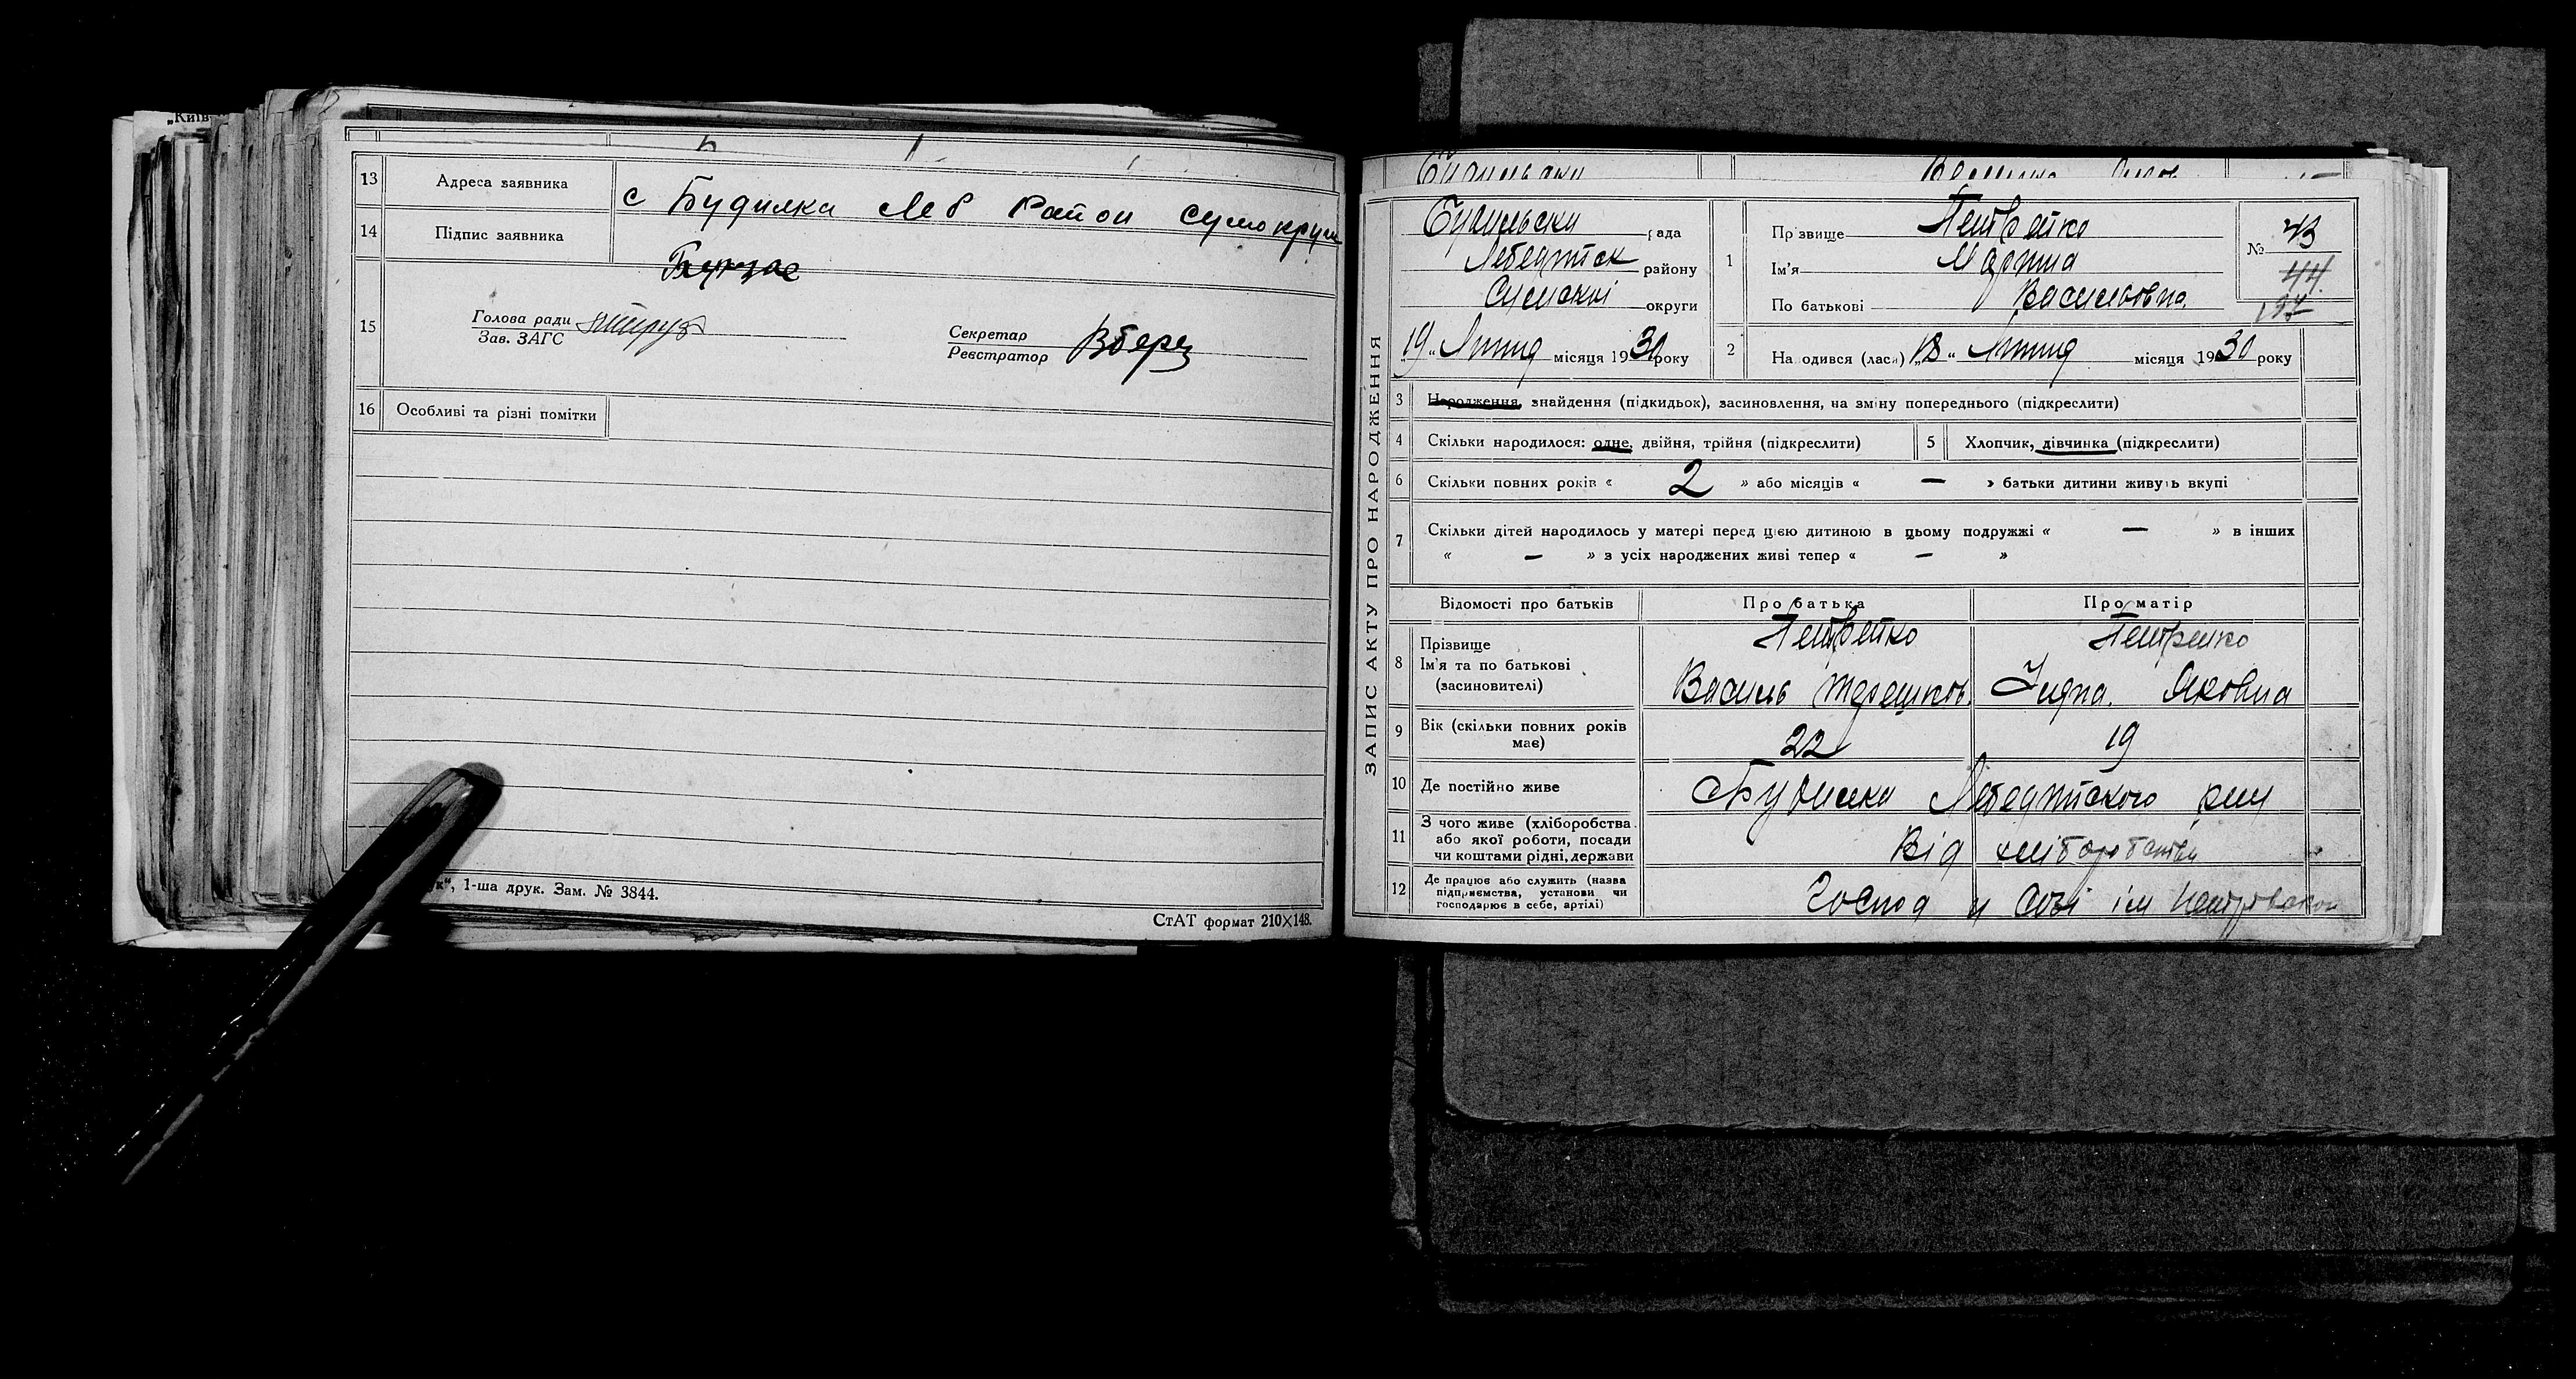 „Київ
13 Адреса заявника с Будилка Леб Район сумокруги
14 Підпис заявника
15 Голова ради
Зав. ЗАГС
Секретар
Реєстратор
16 Особливі та різні помітки
ук“, 1-ша друк. Зам. № 3844.
СтАТ формат 210×148.
ЗАПИС АКТУ ПРО НАРОДЖЕННЯ
Будильска рада
Лебединск району
Сумскої округи
19 „ Лютид місяця 1930 року
1 Прізвище Петренко
Ім'я Марина
По батькові Васильовна
№ 43
44
197
2 Народився (лася) „18“ Лютид місяця 1930 року
3 Народження, знайдення (підкидьок), засиновлення, на зміну попереднього (підкреслити)
4 Скільки народилося: одне, двійня, трійня (підкреслити)
5 Хлопчик, дівчинка (підкреслити)
6 Скільки повних років « 2 » або місяців « — » батьки дитини живуть вкупі
7 Скільки дітей народилось у матері перед цією дитиною в цьому подружжі « — » в інших
« — » з усіх народжених живі тепер « — »
Відомості про батьків Про батька Про матір
8 Прізвище Петренко Петренко
Ім'я та по батькові Василь Терешков. Яковна
(засиновителі)
9 Вік (скільки повних років має) 22 19
10 Де постійно живе с Будилка Лебединского рну
11 З чого живе (хліборобства або якої роботи, посади чи коштами рідні, держави Від хліборобства
12 Де працює або служить (назва підприємства, установи чи господарює в себе, артілі) Господ у Созі ім Петровского